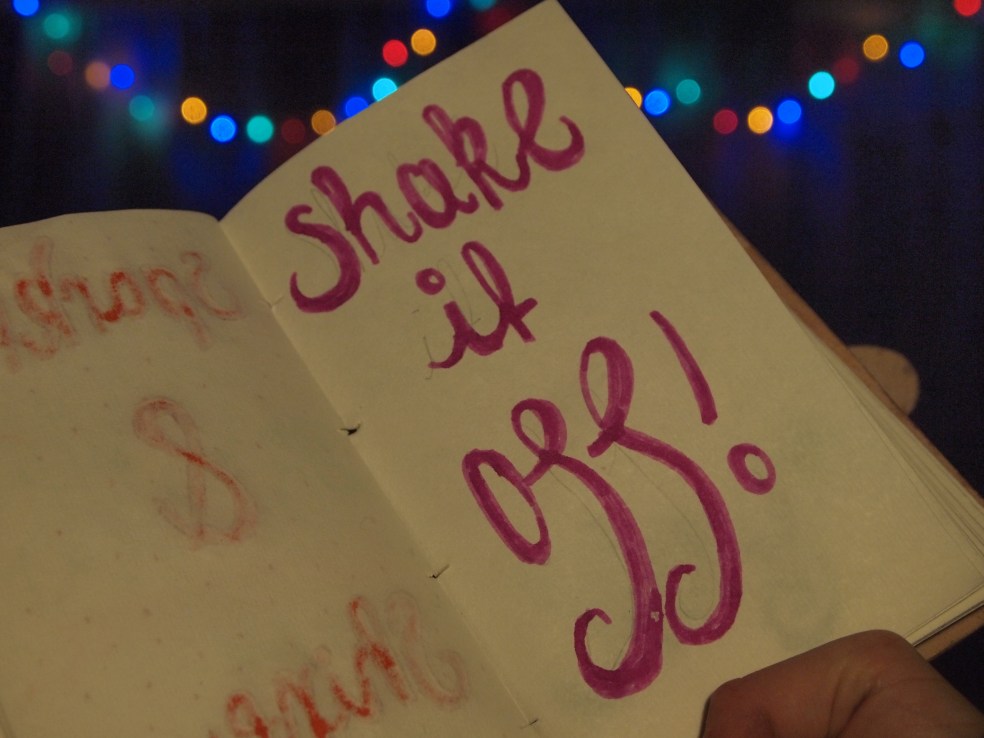 shake
it
off!